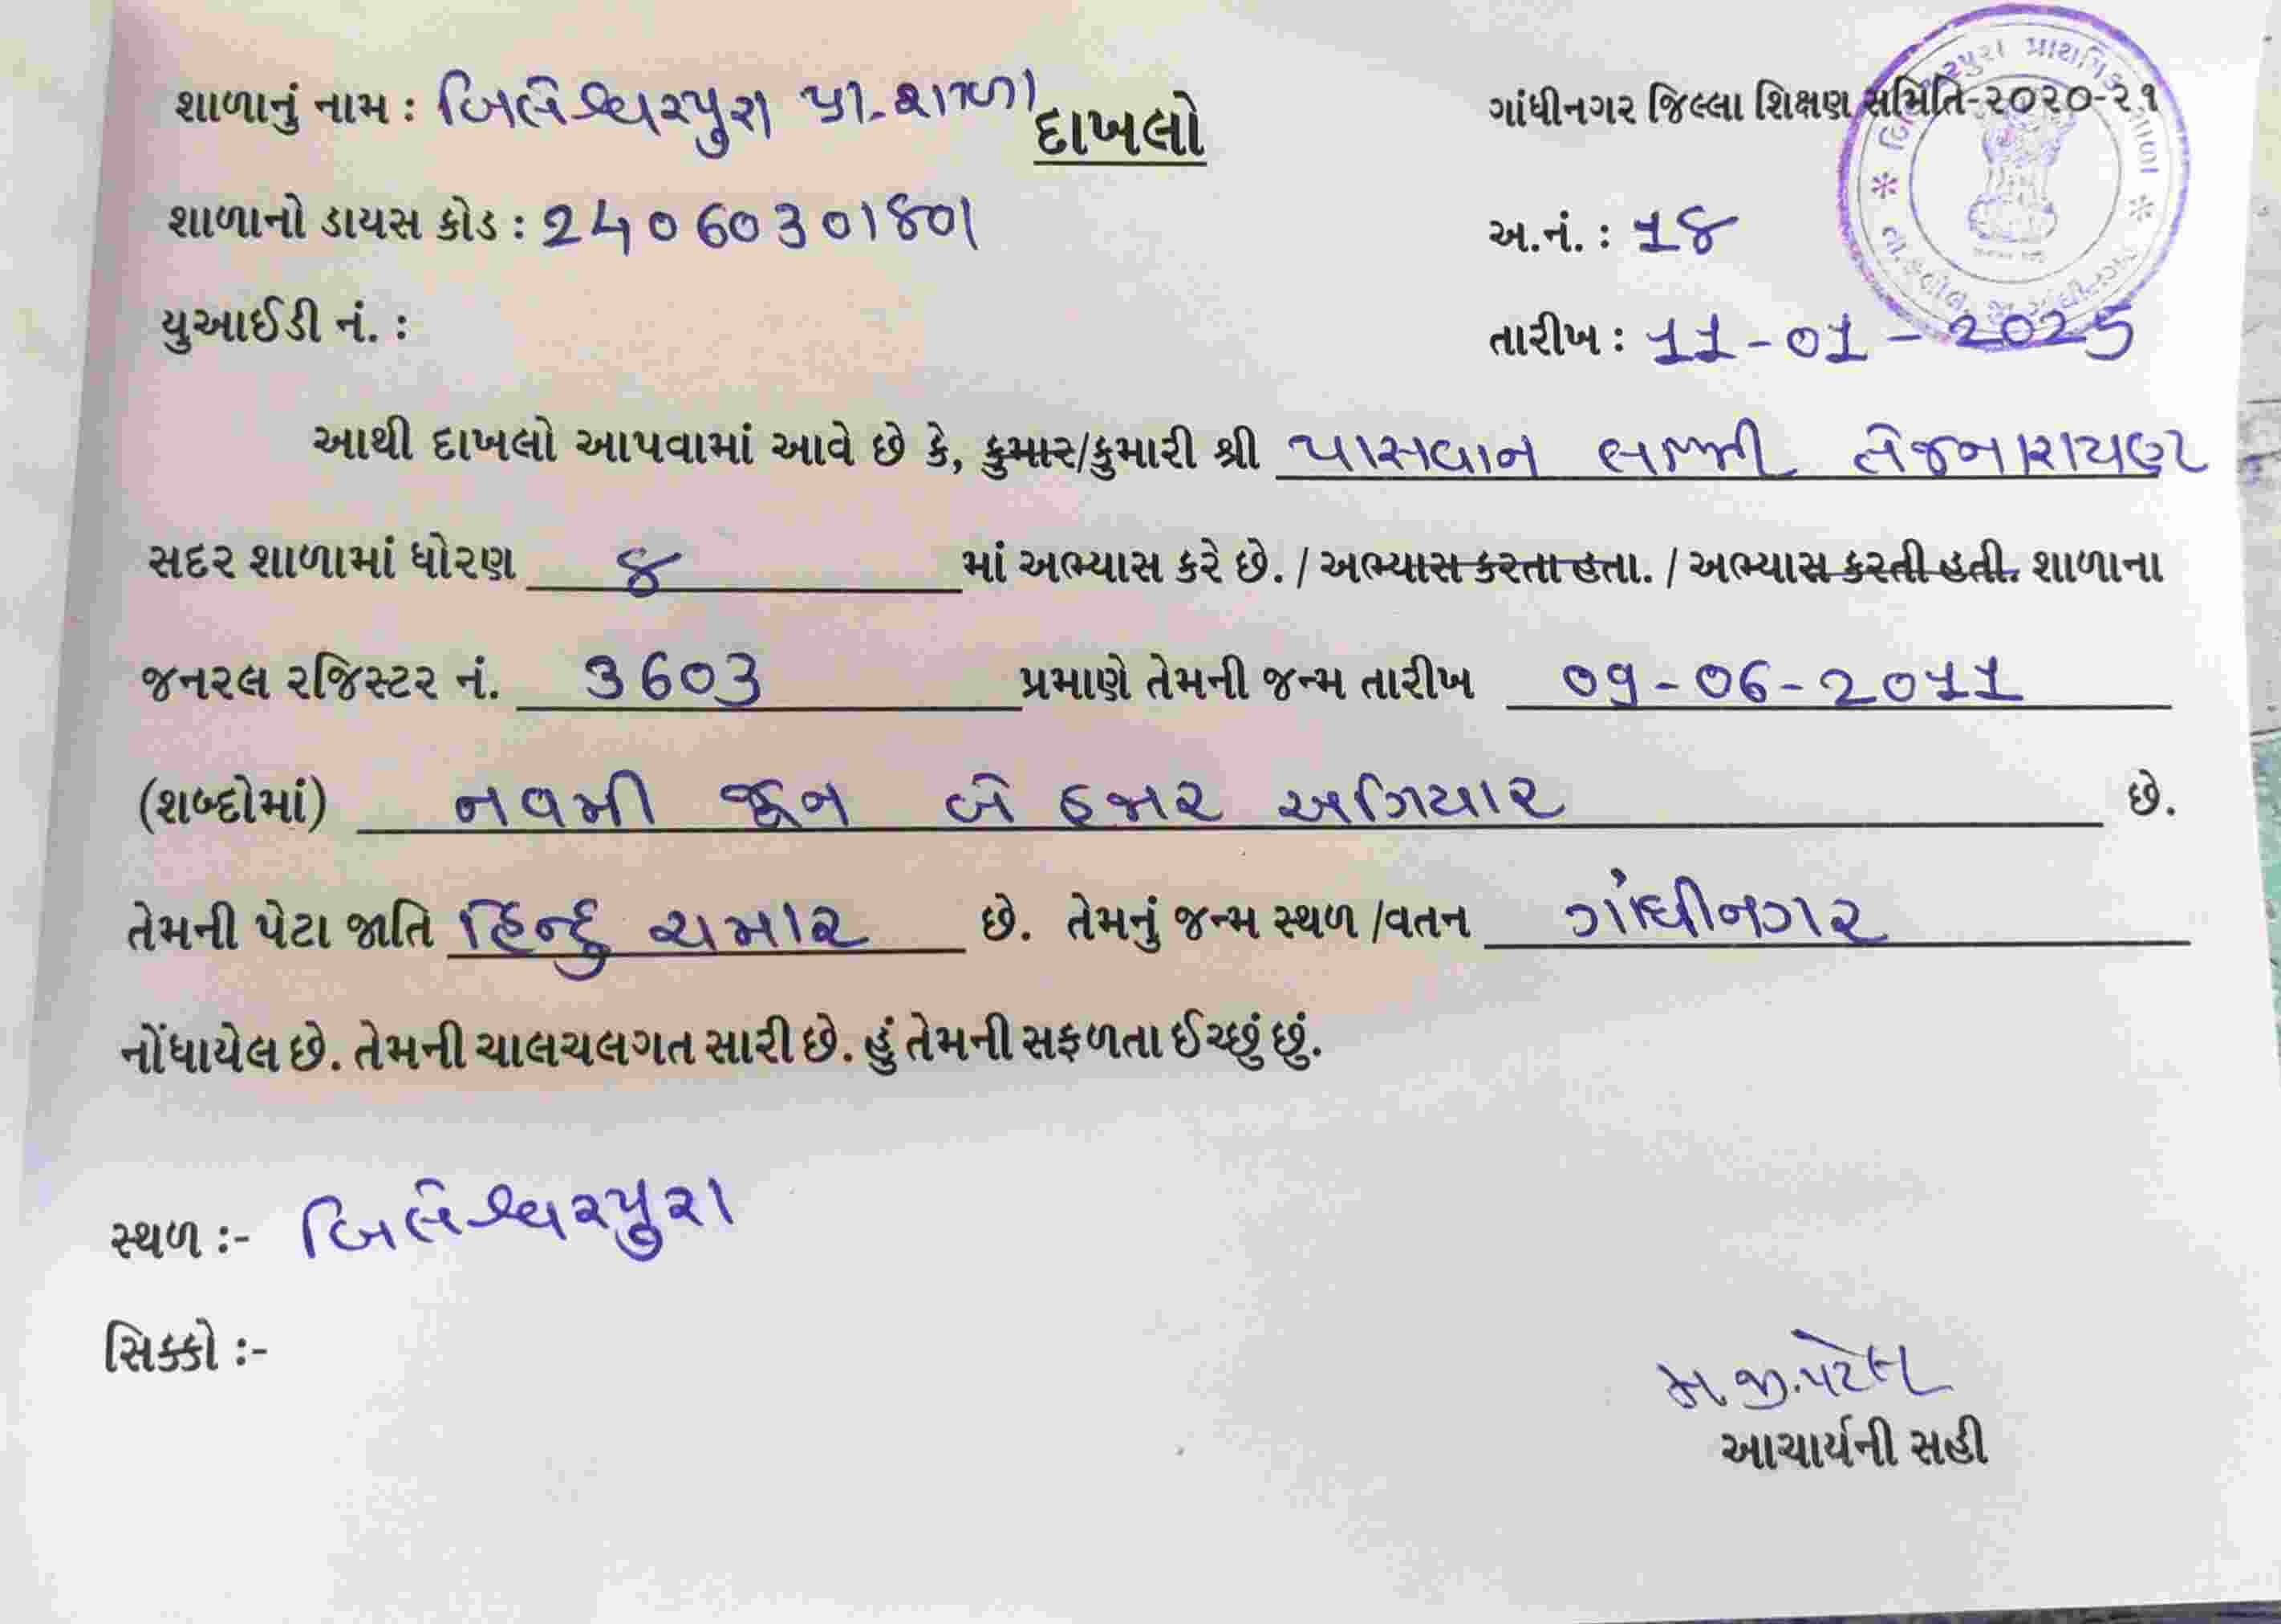 શાળાનું નામ : બિલેશ્વરપુરા પ્રા. શાળા
દાખલો
ગાંધીનગર જિલ્લા શિક્ષણ સમિતિ-૨૦૨૦-૨૧
શાળાનો ડાયસ કોડ : 24060301801
અ.નં. : 1૪
યુઆઈડી નં. :
તારીખ : 11-01-2025
આથી દાખલો આપવામાં આવે છે કે, કુમાર/કુમારી શ્રી પાસવાન લક્ષ્મી તેજનારાયણ
સદર શાળામાં ધોરણ ૪ માં અભ્યાસ કરે છે. / અભ્યાસ કરતા હતા. / અભ્યાસ કરતી હતી. શાળાના
જનરલ રજિસ્ટર નં. 3603 પ્રમાણે તેમની જન્મ તારીખ 09-06-2011
(શબ્દોમાં) નવમી જૂન બે હજાર અગિયાર છે.
તેમની પેટા જાતિ હિન્દુ ચમાર છે. તેમનું જન્મ સ્થળ /વતન ગાંધીનગર
નોંધાયેલ છે. તેમની ચાલચલગત સારી છે. હું તેમની સફળતા ઈચ્છું છું.
સ્થળ :- બિલેશ્વરપુરા
સિક્કો :-
મ. જી. પટેલ
આચાર્યની સહી